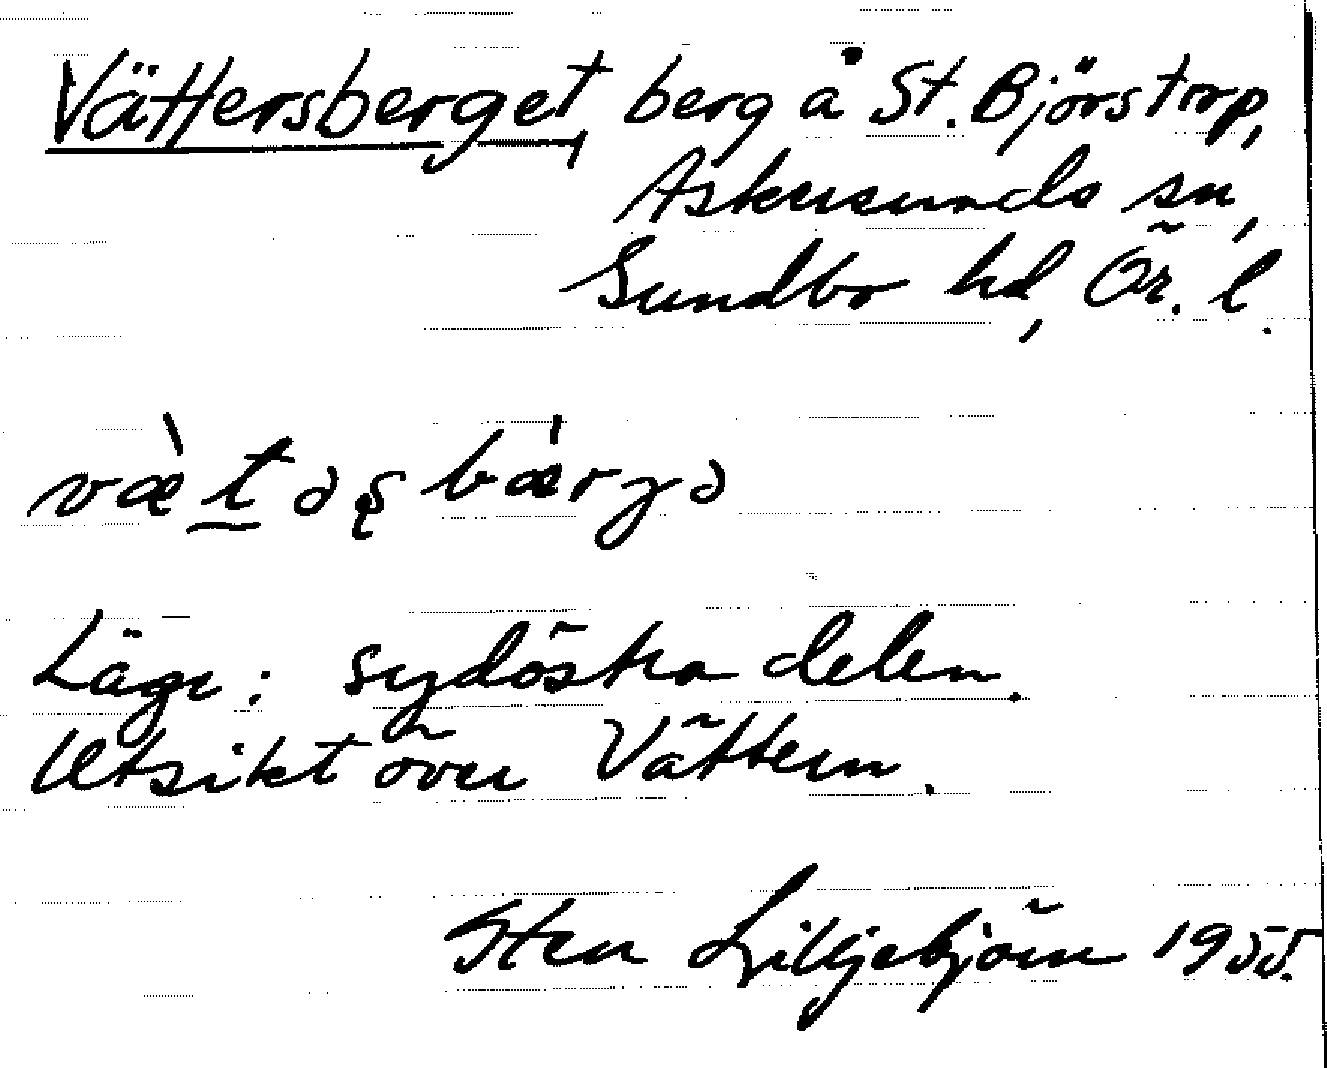 Vättersberget, berg å St. Björstorp,
Askersunds sn,
Sundbo hd, Ör. l.
væ̀təʂbæ̀rjə
Läge: sydöstra delen.
Utsikt över Vättern.
Sten Lilljebjörn 1955.